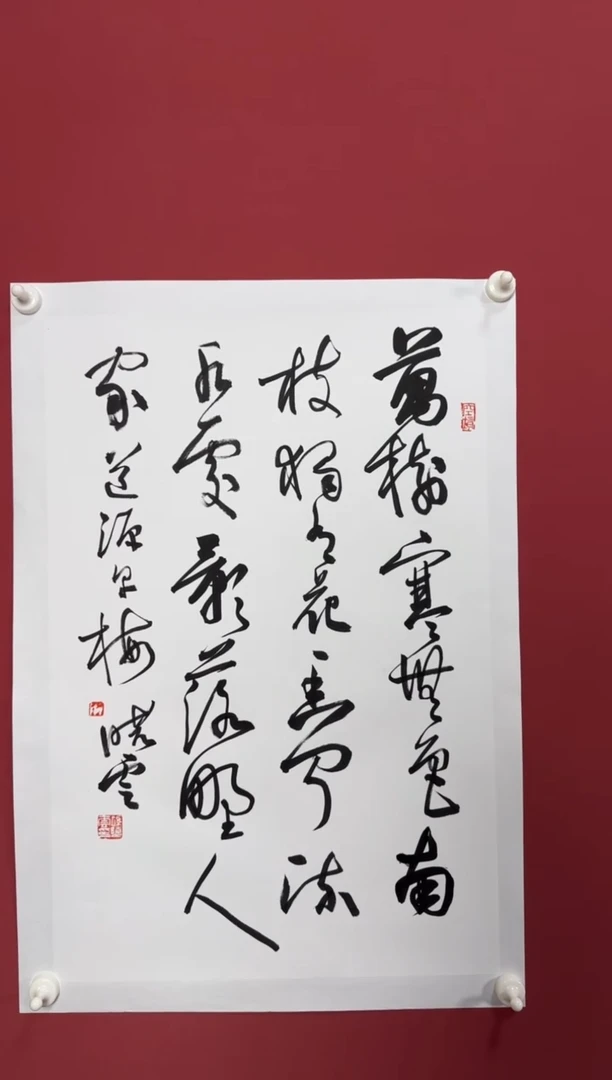 萬樹寒無色南
枝獨有花香聞流
水處影落野人
家 道源早梅
曉雲